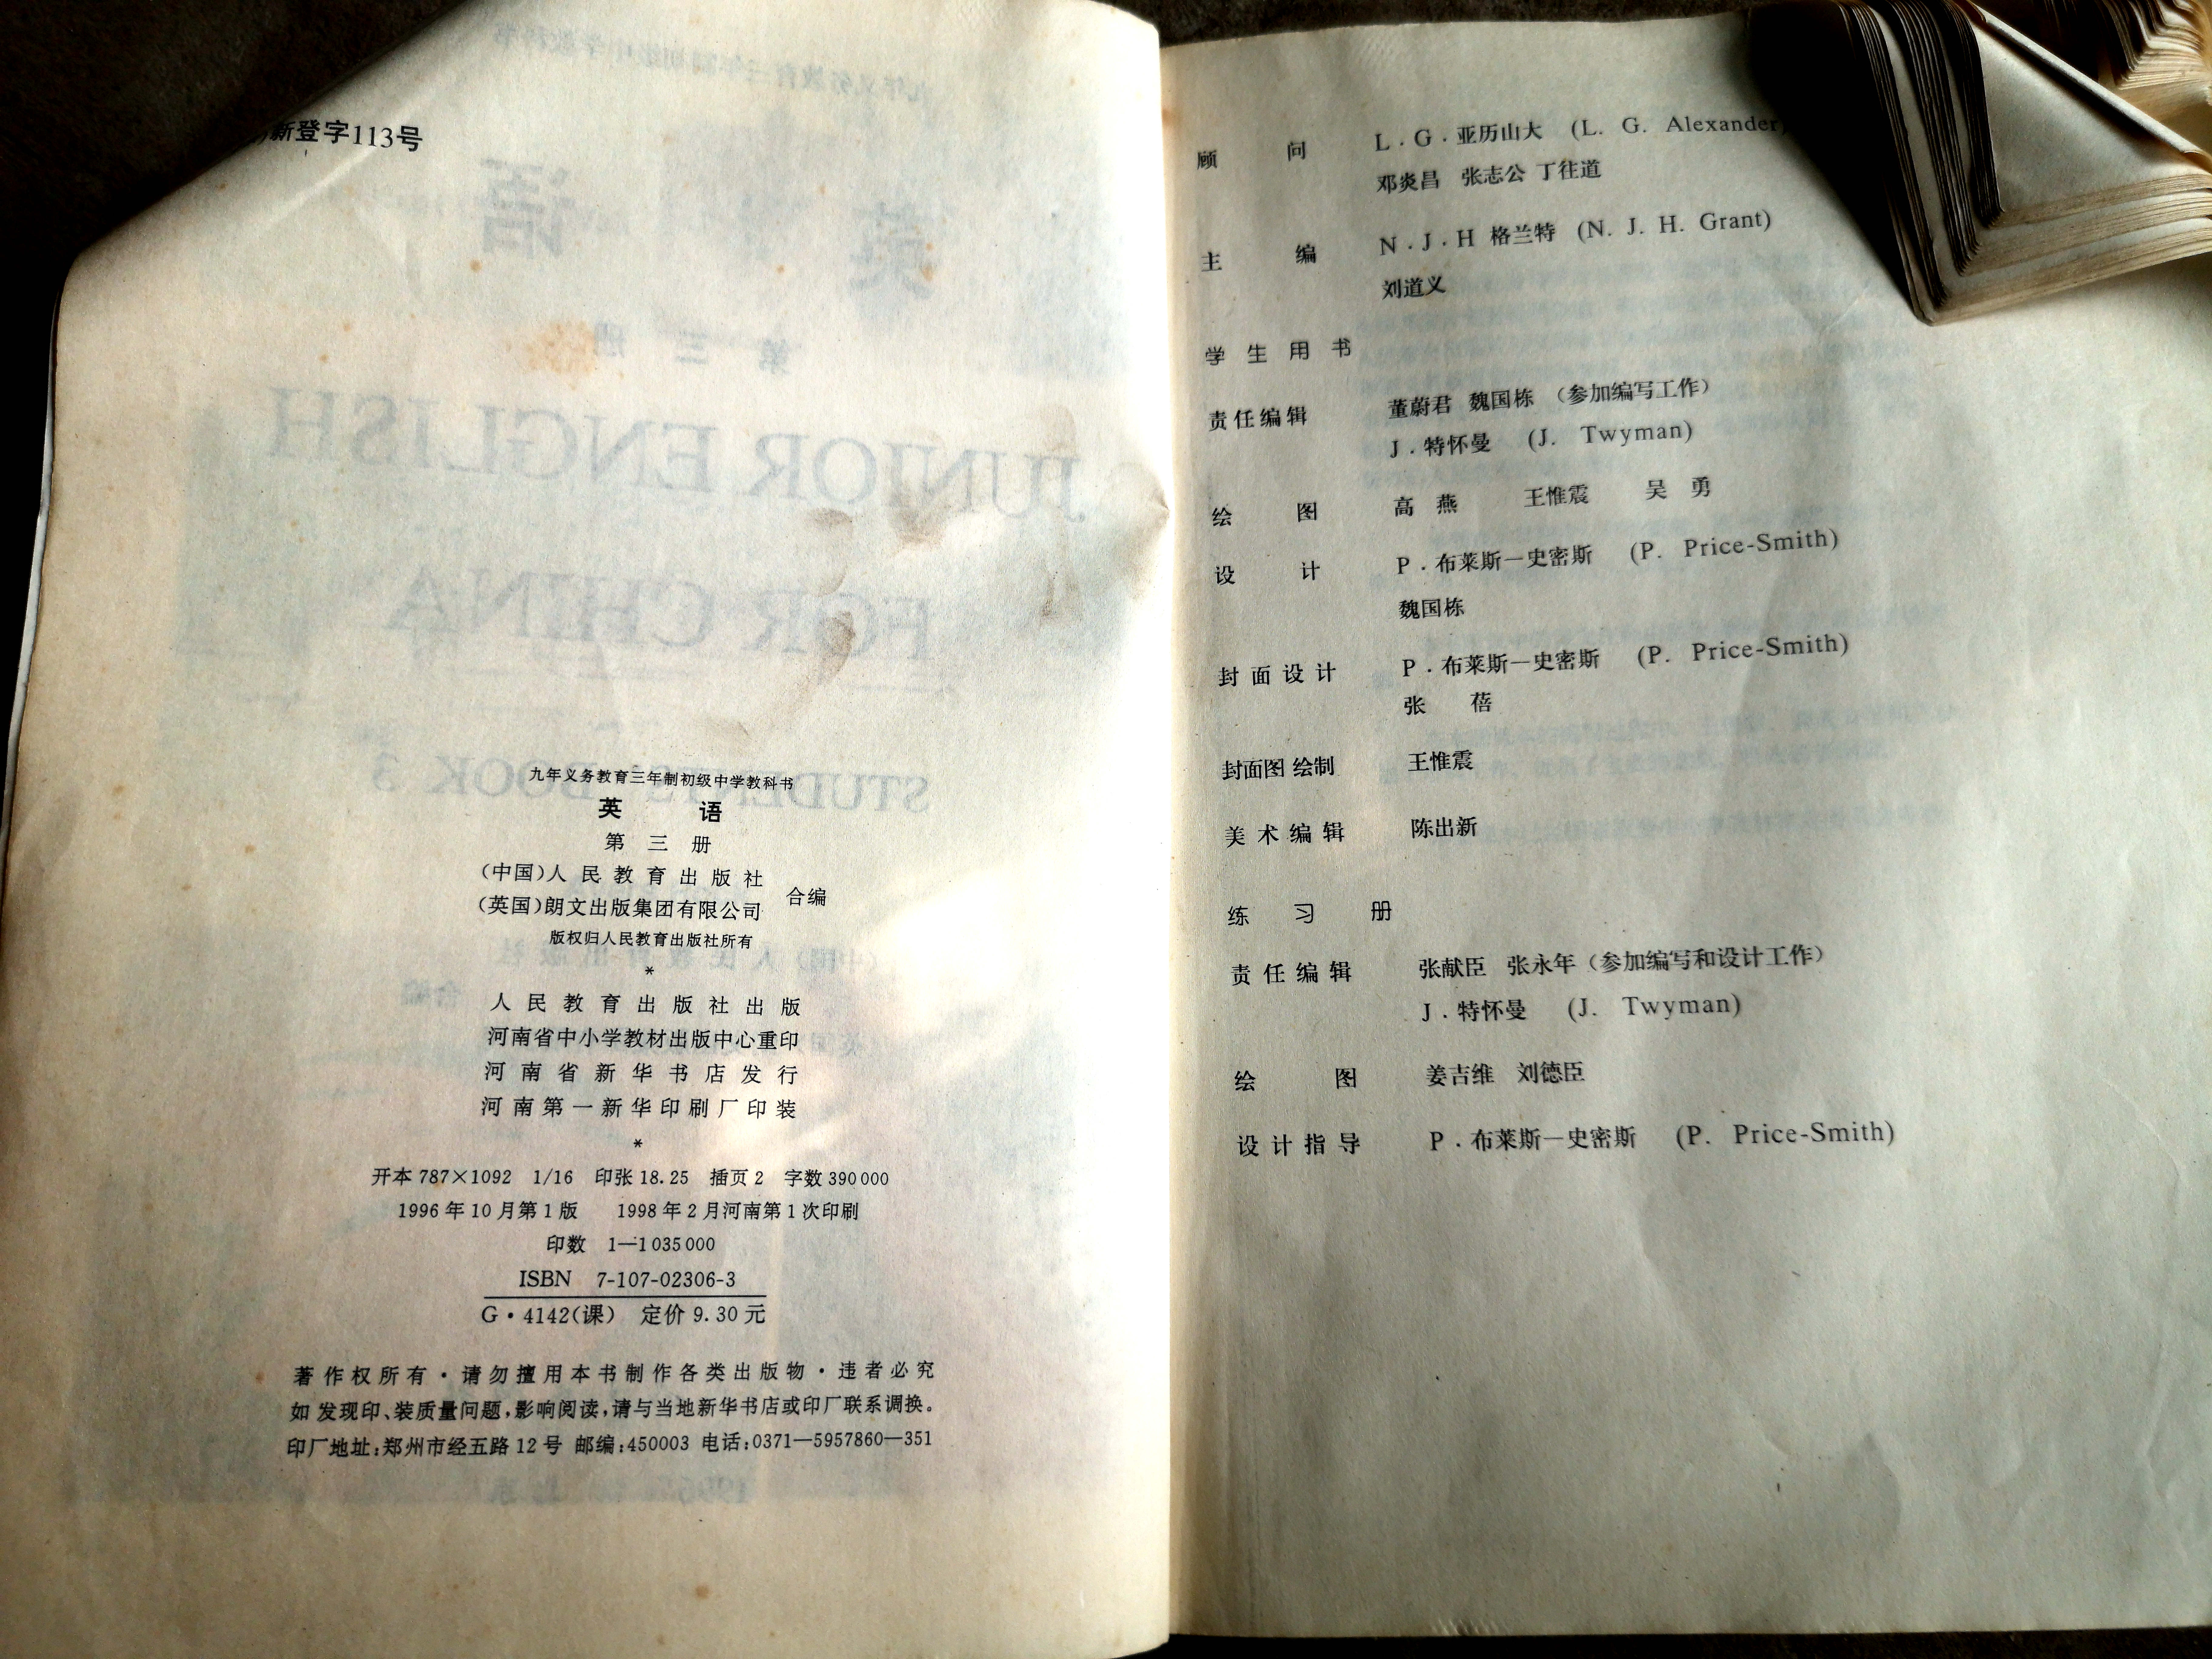 新登字113号
九年义务教育三年制初级中学教科书
英 语
第 三 册
(中国)人 民 教 育 出 版 社
(英国)朗文出版集团有限公司
合编
版权归人民教育出版社所有
*
人 民 教 育 出 版 社 出 版
河南省中小学教材出版中心重印
河 南 省 新 华 书 店 发 行
河 南 第 一 新 华 印 刷 厂 印 装
*
开本 787×1092 1/16 印张 18.25 插页 2 字数 390 000
1996 年 10 月第 1 版 1998 年 2 月河南第 1 次印刷
印数 1—1 035 000
ISBN 7-107-02306-3
G·4142(课) 定价 9.30 元
著 作 权 所 有·请 勿 擅 用 本 书 制 作 各 类 出 版 物·违 者 必 究
如 发现印、装质量问题,影响阅读,请与当地新华书店或印厂联系调换。
印厂地址:郑州市经五路 12 号 邮编:450003 电话:0371—5957860—351
顾 问 L.G.亚历山大 (L. G. Alexander)
邓炎昌 张志公 丁往道
主 编 N.J.H 格兰特 (N. J. H. Grant)
刘道义
学 生 用 书
责任编辑 董蔚君 魏国栋 (参加编写工作)
J.特怀曼 (J. Twyman)
绘 图 高 燕 王惟震 吴 勇
设 计 P.布莱斯—史密斯 (P. Price-Smith)
魏国栋
封 面 设 计 P.布莱斯—史密斯 (P. Price-Smith)
张 蓓
封面图 绘制 王惟震
美 术 编 辑 陈出新
练 习 册
责 任 编 辑 张献臣 张永年(参加编写和设计工作)
J.特怀曼 (J. Twyman)
绘 图 姜吉维 刘德臣
设 计 指 导 P.布莱斯—史密斯 (P. Price-Smith)